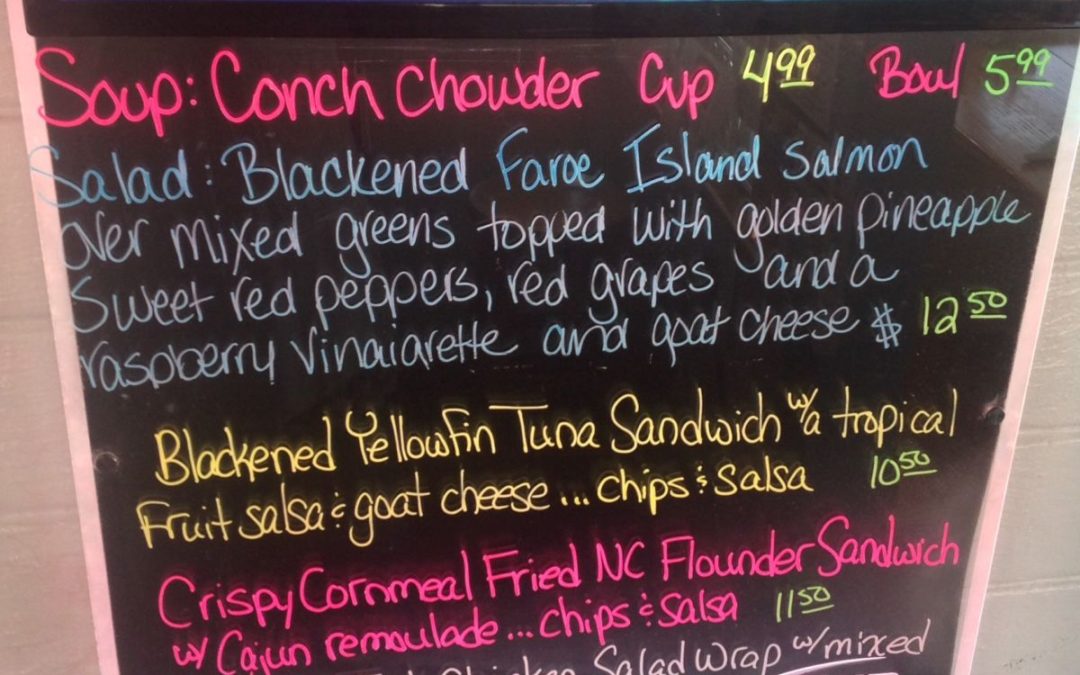 Soup: Conch Chowder Cup 4.99 Bowl 5.99
Salad: Blackened Faroe Island Salmon
over mixed greens topped with golden pineapple
Sweet red peppers, red grapes and a
raspberry vinaiarette and goat cheese $ 12.50
Blackened Yellowfin Tuna Sandwich w/ a tropical
Fruit salsa & goat cheese... chips & salsa 10.50
Crispy Cornmeal Fried NC Flounder Sandwich
w/ Cajun remoulade... chips & salsa 11.50
Chicken Salad Wrap w/ mixed